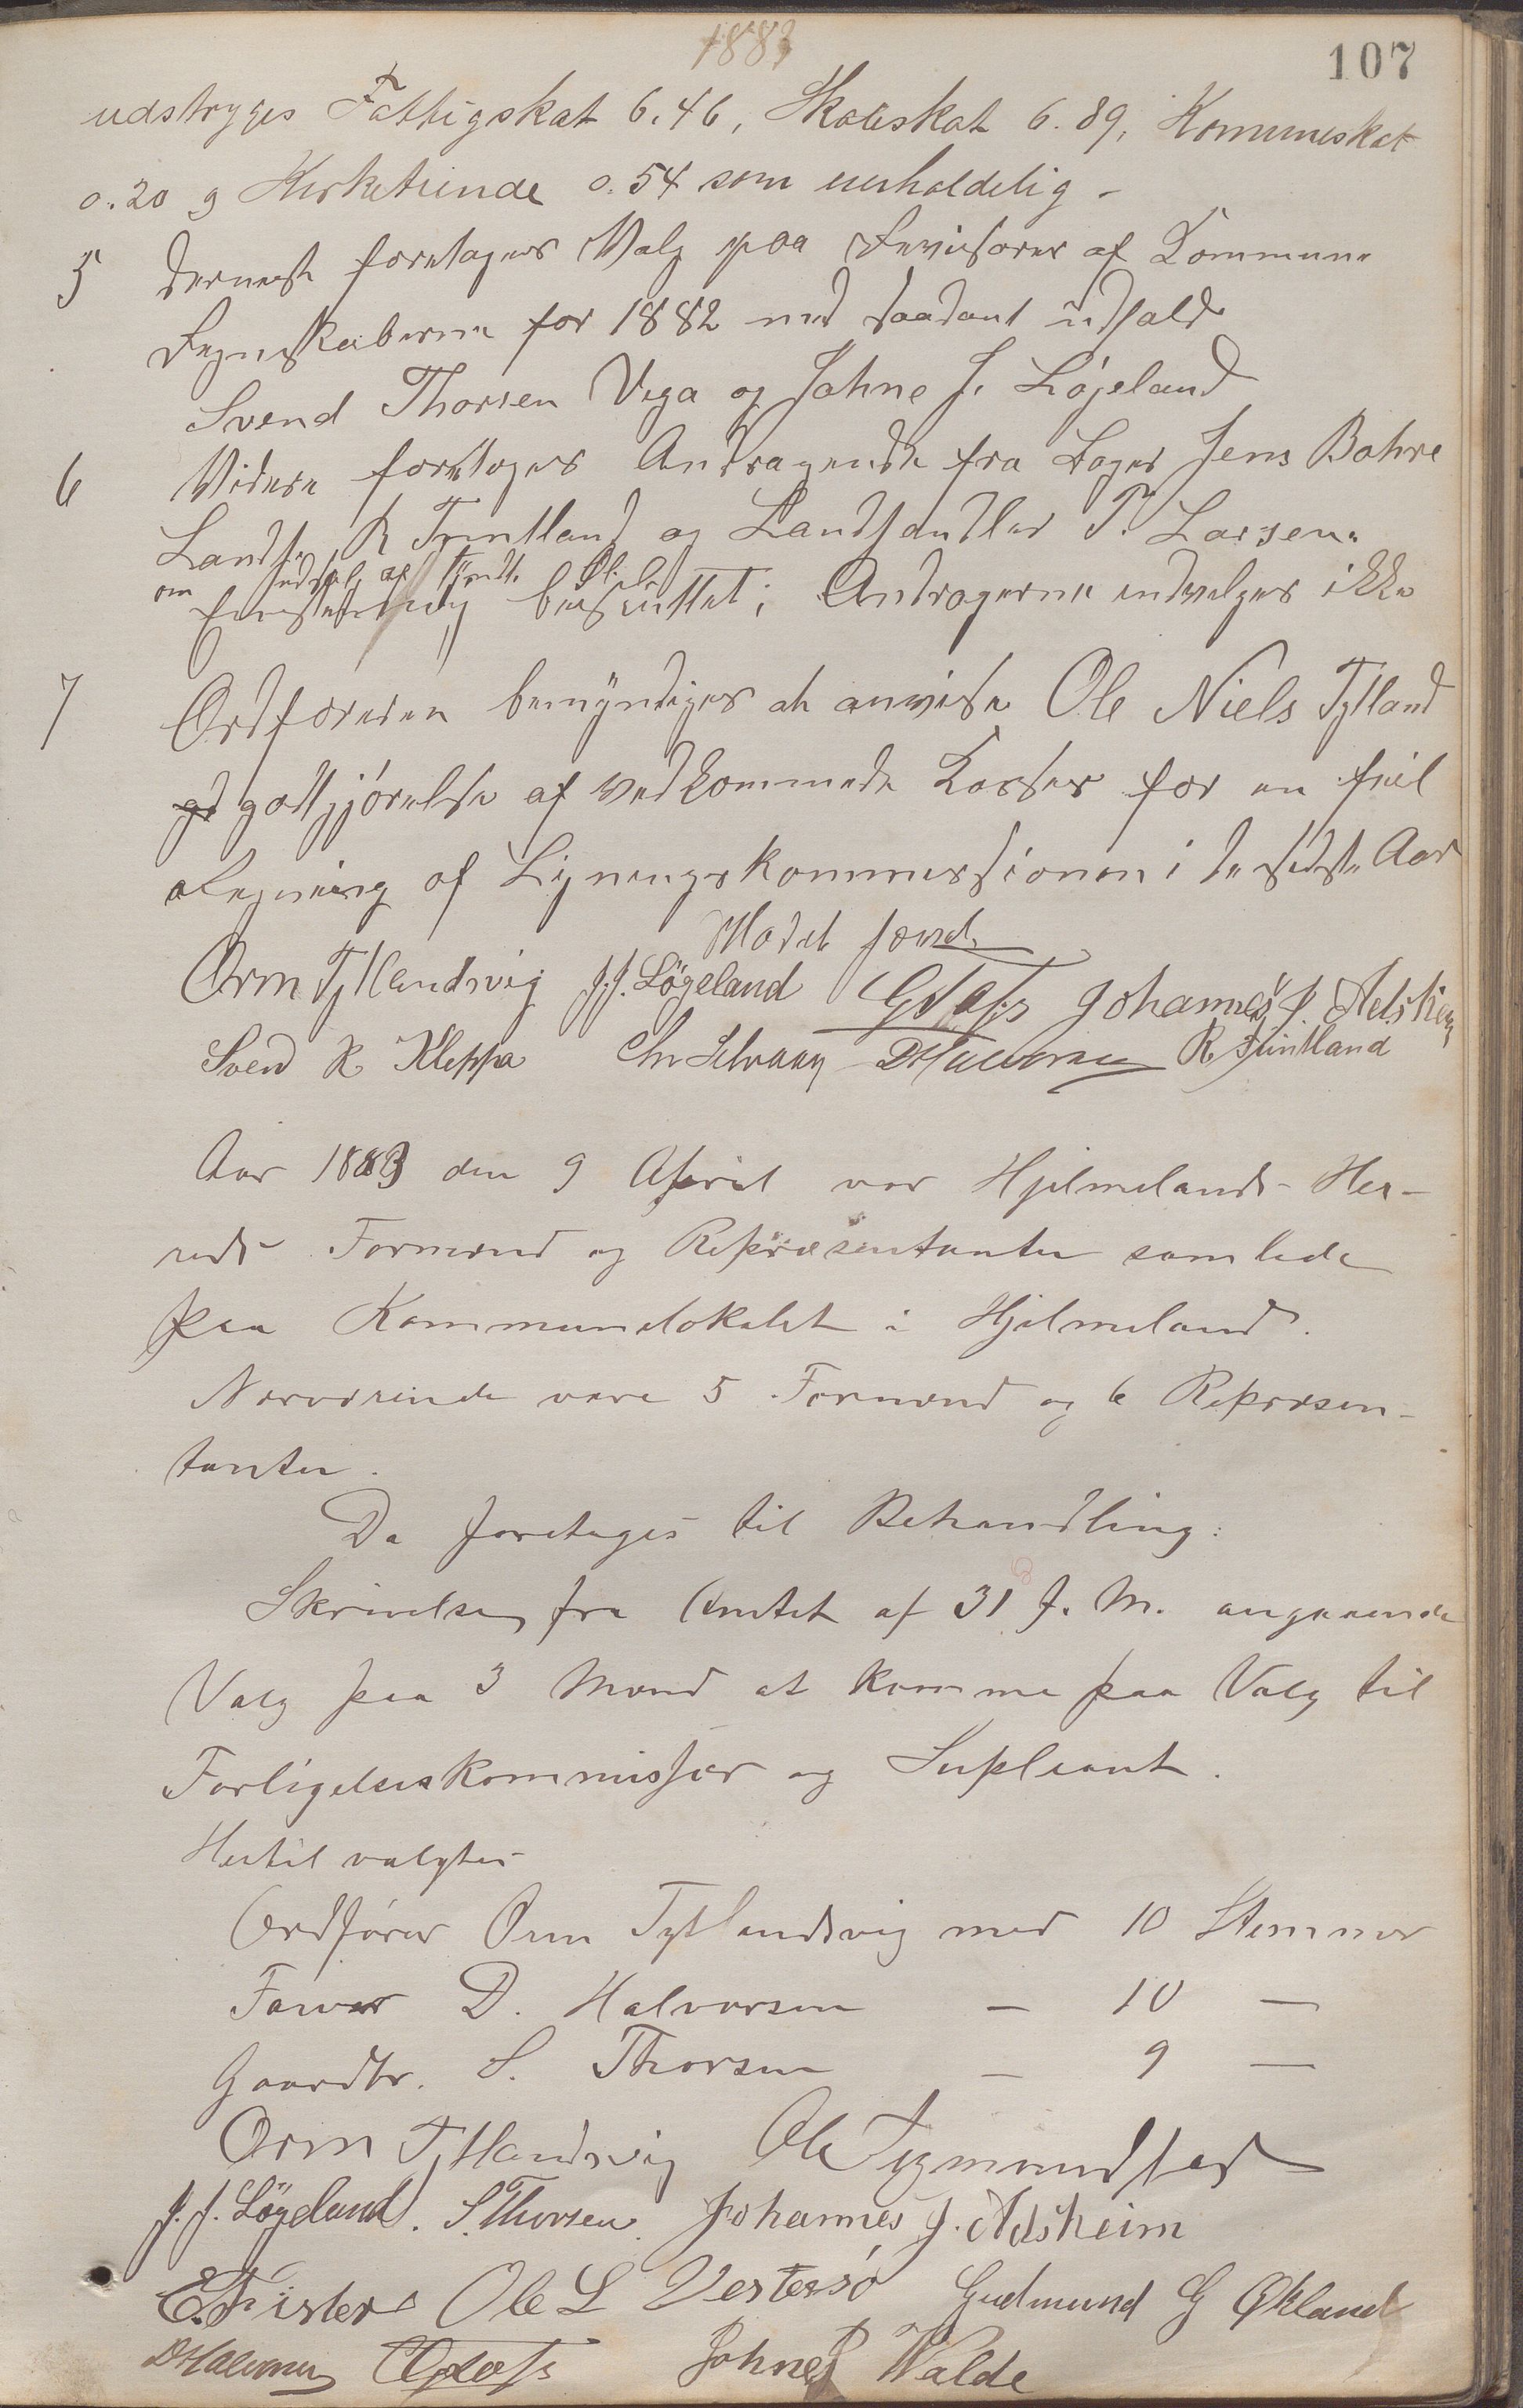 1883
107
udstryges Fattigskat 6.46, Skoleskat 6.89, Kommuneskat
0.20 og Kirketiende 0.54 som uerholdelig -
5 Dernæst foretoges Valg paa Revisorer af Kommune
Regnskaberne for 1882 med saadant Udfald
Svend Thorsen Vega og Johne J. Løgeland
6 Videre foretoges Andragende fra Jens Bohre
Landh. R Funtland og Landhandler T. Larsen
om Indsalg af
besluttet; Andragerne ikke
7 Ordføreren bemyndiges at anvise Ole Niels Tytland
godtgjørelse af vedkommende Kasser for en feil
Ligningskommissionen i de sidste Aar
Mødet hævet
Orm Tytlandsvig J.J. Løgeland Johannes J. Adsheim
Svend R Kleppa D Halvorsen R Funtland
Aar 1883 den 9 April var Hjelmelands Her-
reds Formænd og Repræsentanter samlede
paa Kommunelokalet i Hjelmeland.
Nærværende vare 5 Formænd og 6 Repræsen-
tanter.
Da foretages til Behandling:
Skrivelse fra Amtet af 31 f. M. angaaende
Valg paa 3 Mænd at komme paa Valg til
Forligelseskommissær og Supleant.
Hertil valgtes
Ordfører Orm Tytlandsvig med 10 Stemmer
Farver D. Halvorsen — 10 —
Gaardbr. S. Thorsen — 9 —
Orm Tytlandsvig Ole Sigmundstad
J. J. Løgeland. S. Thorsen. Johannes J. Adsheim
E. Fister Ole L Vestersø Gudmund G Økland
D Halvorsen Johne Walde